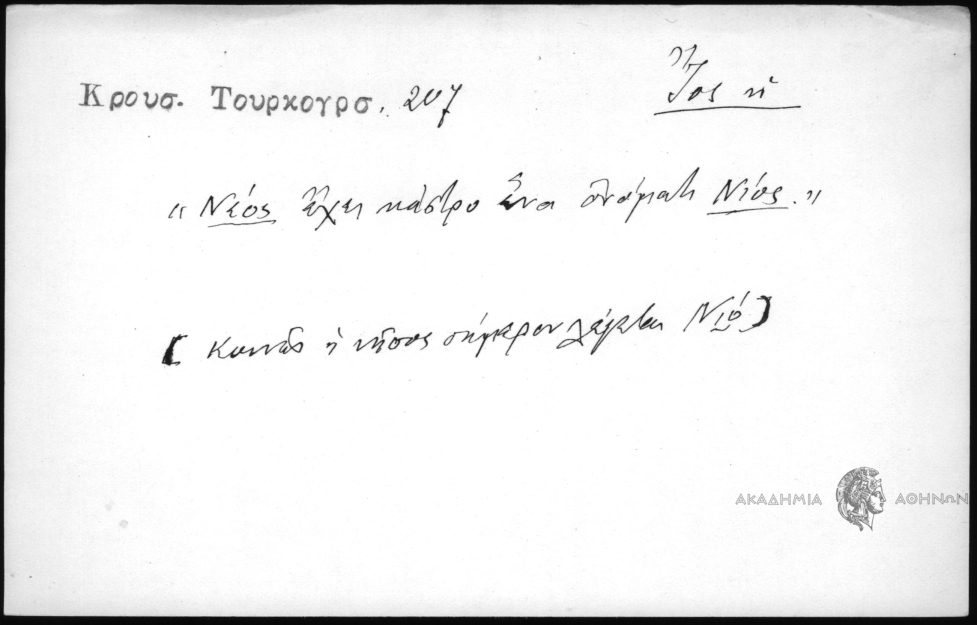 Κρουσ. Τουρκογρσ. 207
Ἴος ἡ
« Νέος ἔχει κάστρο ἕνα ὀνόματι Νίος. »
[ κοινῶς ἡ νῆσος σήμερον λέγεται Νιό ]
ΑΚΑΔΗΜΙΑ ΑΘΗΝΩΝ